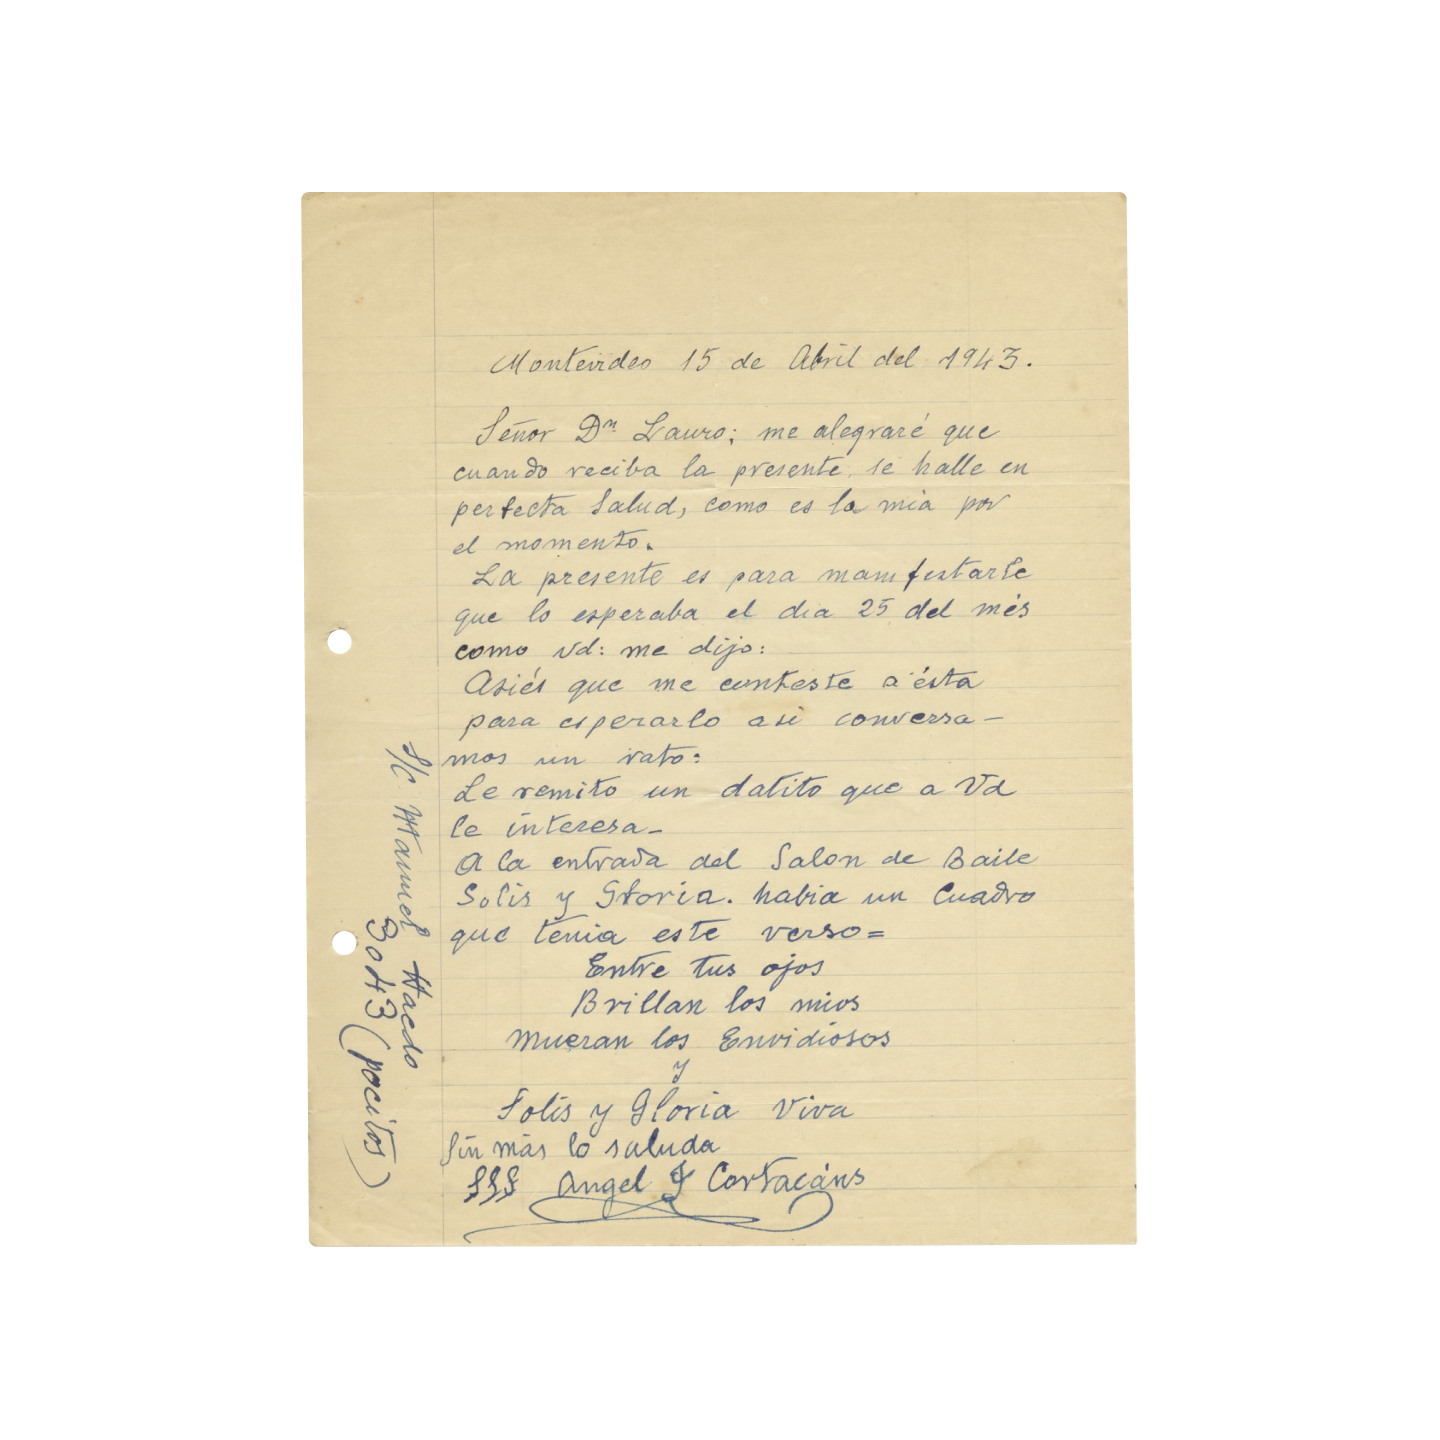 Montevideo 15 de Abril del 1943.
Señor Dn Lauro; me alegraré que
cuando reciba la presente se halle en
perfecta Salud, como es la mia por
el momento.
La presente es para manifestarle
que lo esperaba el dia 25 del més
como Vd: me dijo:
Asiés que me conteste a ésta
para esperarlo asi conversa-
mos un rato:
Le remito un datito que a Vd
le interesa-
A la entrada del Salon de Baile
Solis y Gloria. habia un Cuadro
que tenia este verso=
Entre tus ojos
Brillan los mios
Mueran los Envidiosos
y
Solis y Gloria Viva
Sin más lo saluda
SSS Angel J Cortacáns
S/c Manuel Haedo
3043 (pocitos)